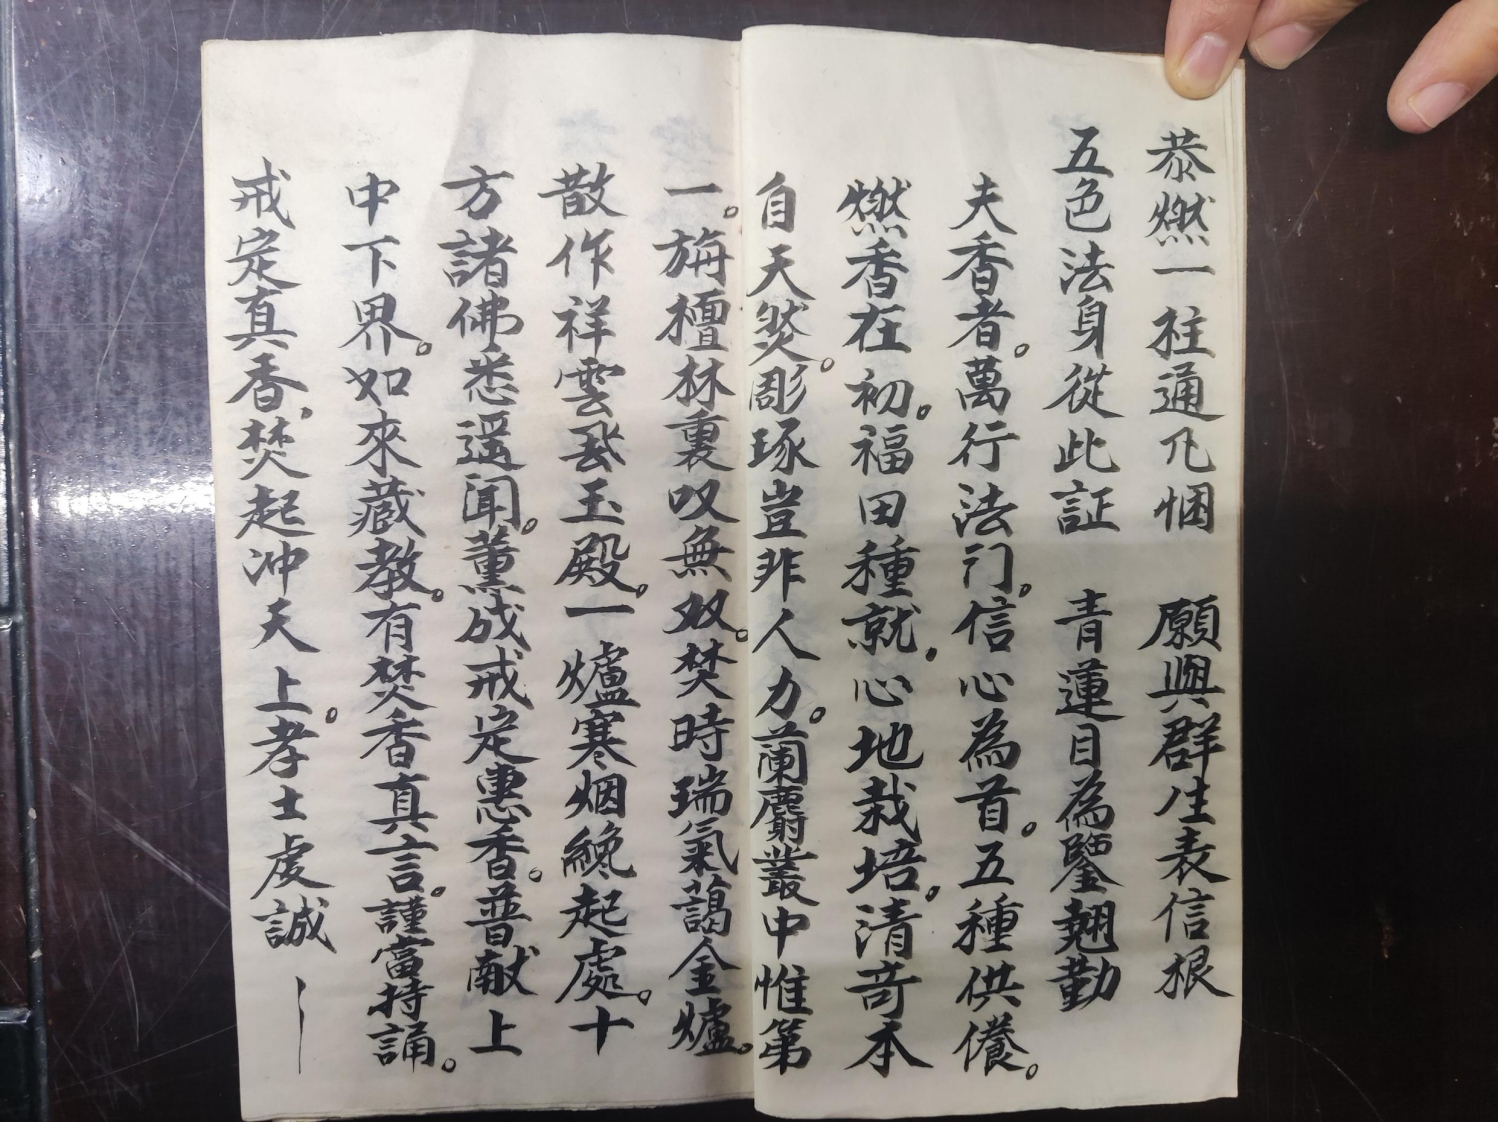 恭燃一柱通凡悃　願與群生表信根
五色法身從此証　青蓮目為鑒翹勤
夫香者。萬行法门。信心為首。五種供儀。
燃香在初。福田種就，心地栽培。清奇本
自天然。彫琢豈非人力。蘭麝叢中惟第
一。旃檀林裏叹無双。焚時瑞氣藹金爐。
散作祥雲飛玉殿。一爐寒烟纔起處。十
方諸佛悉遥闻。薰成戒定惠香。普献上
中下界。如來藏教。有焚香真言。謹當持誦。
戒定真香，焚起冲天上。孝士虔誠